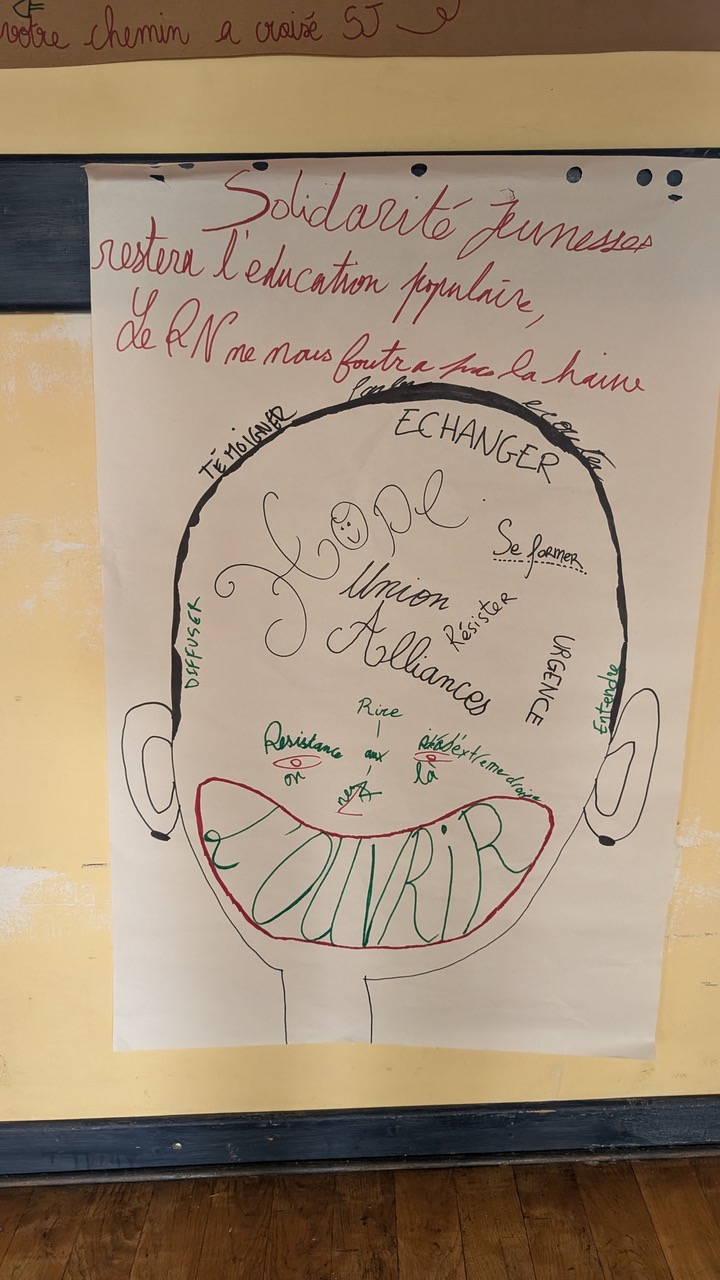 votre chemin a croisé SJ
Solidarité Jeunesses
restera l'éducation populaire,
Le RN ne nous foutra pas la haine
TÉMOIGNER
écouter
ECHANGER
Hope
Se former
Union
Résister
Alliances
DIFFUSER
URGENCE
Entendre
Rire
Resistance
aux
idées d'extreme droite
on
nez
la
L'OUVRIR